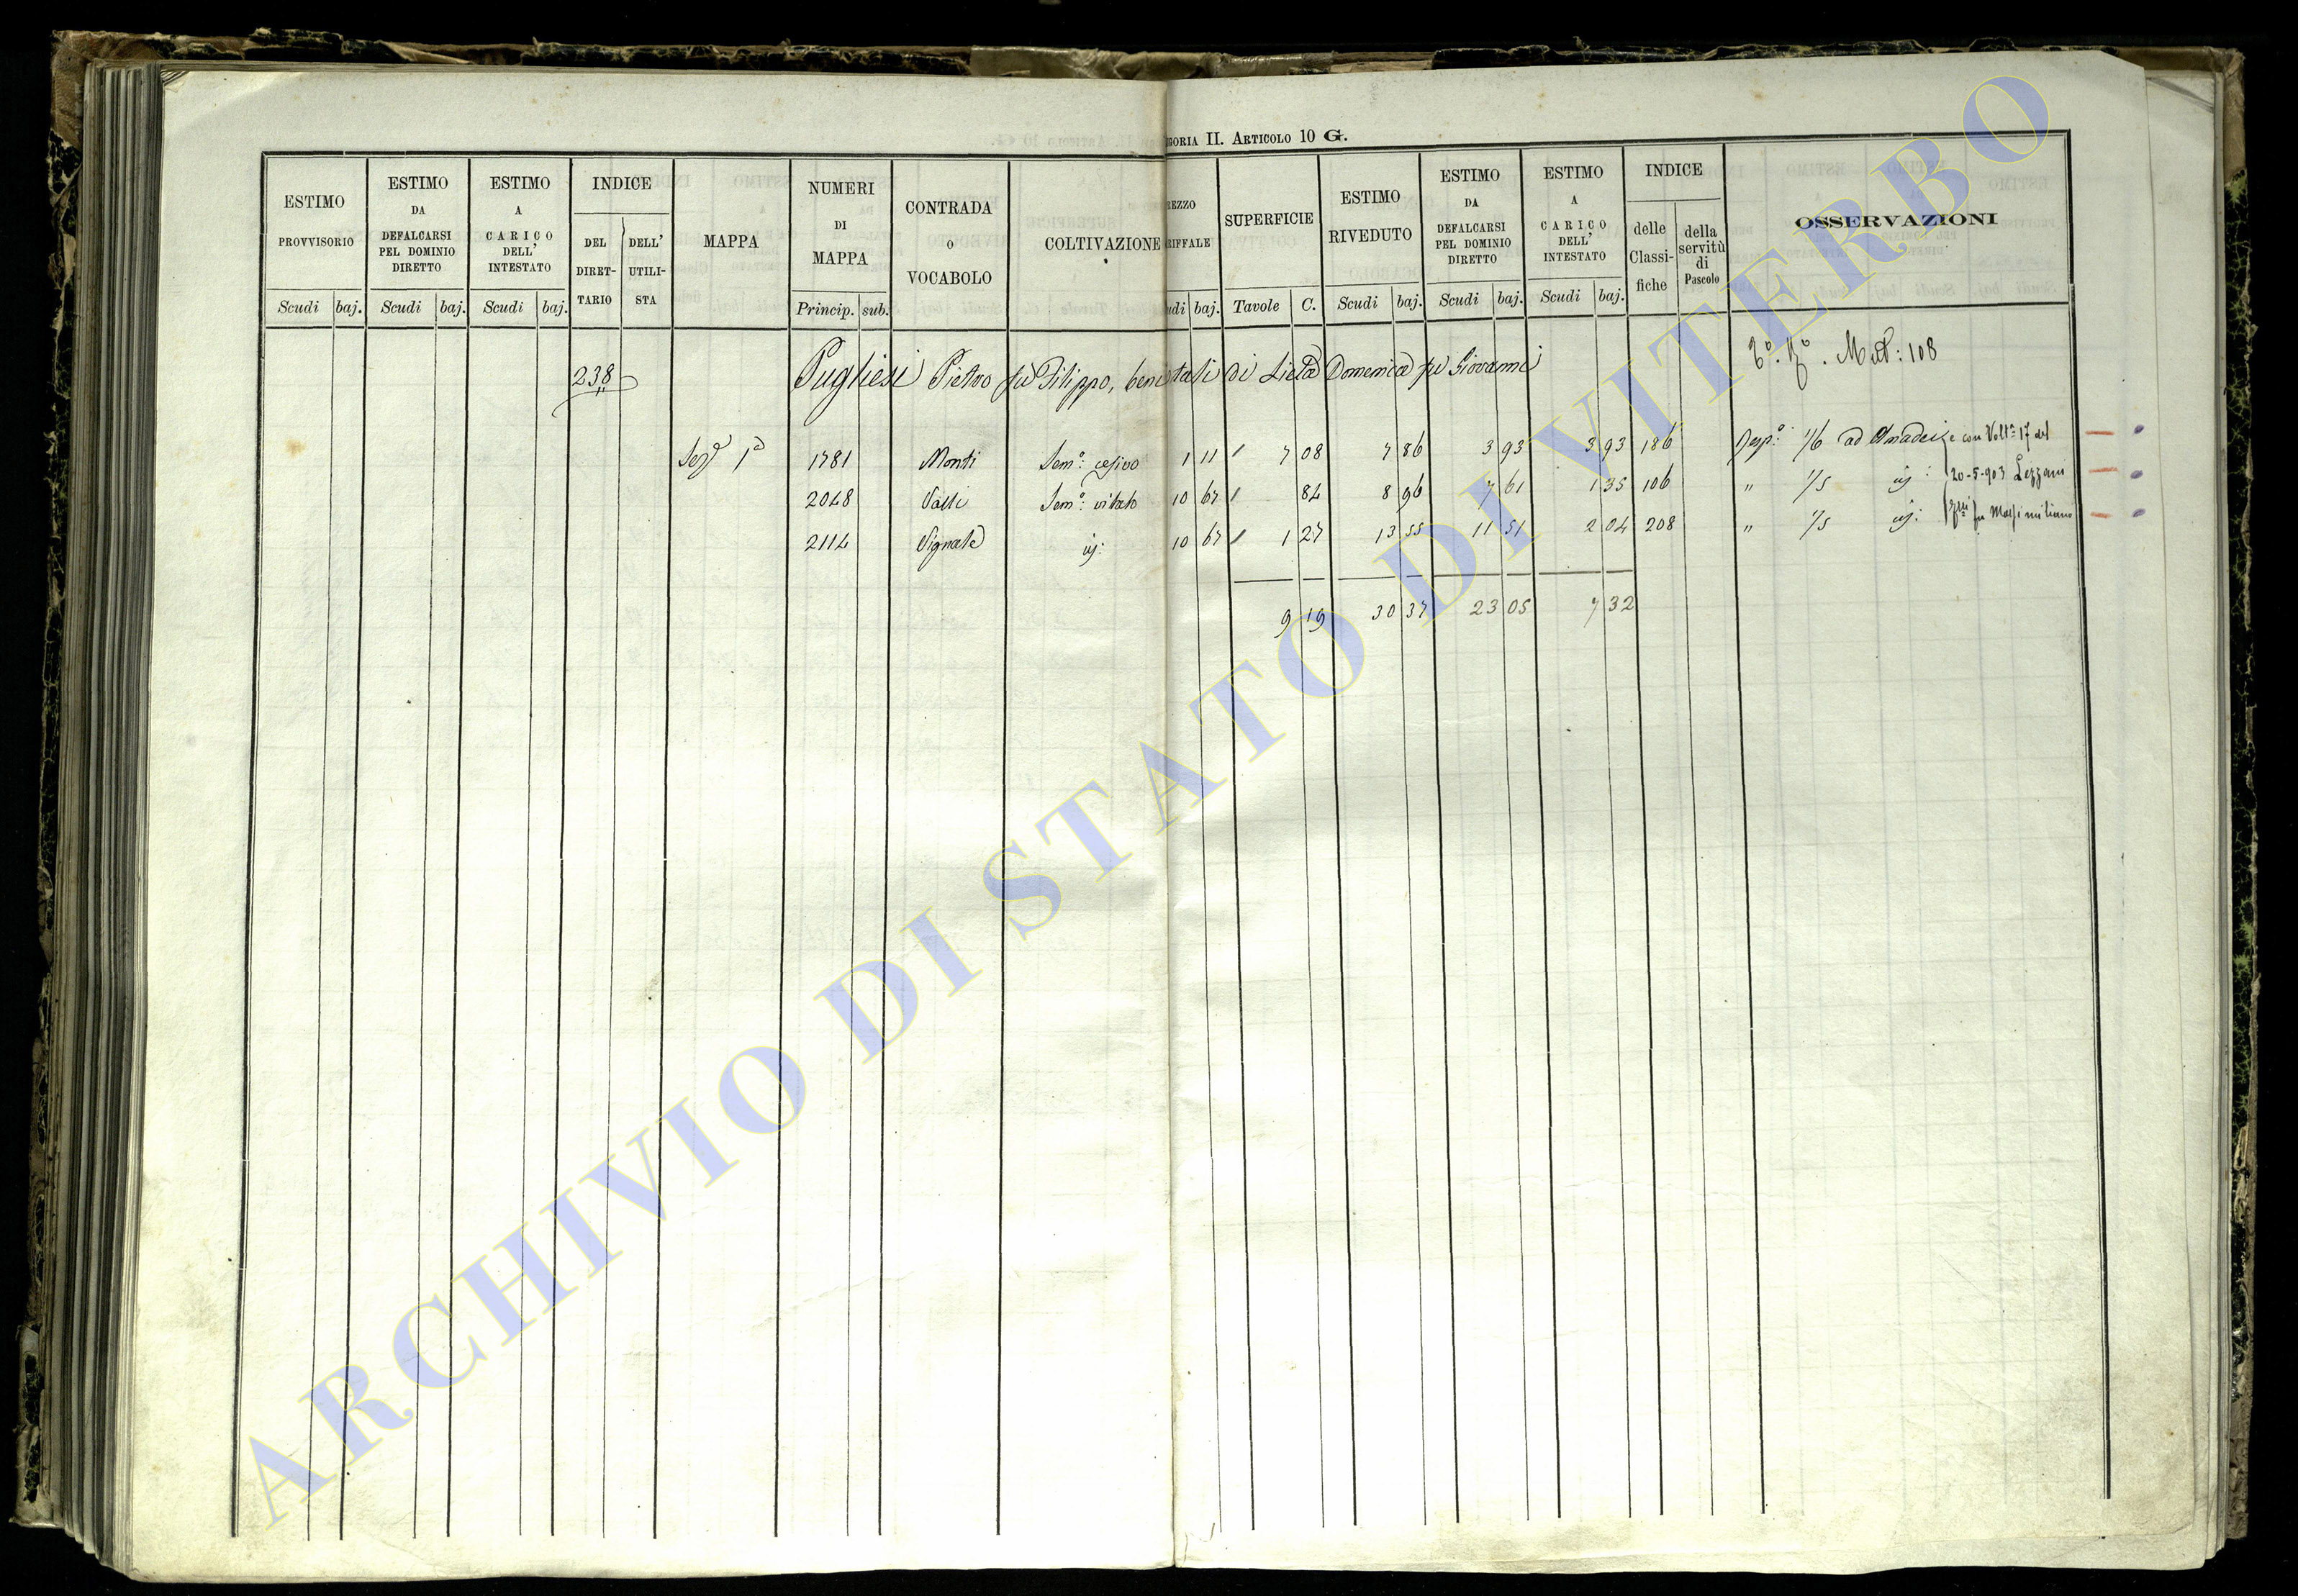 GORIA II. ARTICOLO 10 G.
ESTIMO PROVVISORIO
ESTIMO DA DEFALCARSI PEL DOMINIO DIRETTO
ESTIMO A CARICO DELL' INTESTATO
INDICE
DEL DIRETTARIO
DELL' UTILISTA
MAPPA
NUMERI DI MAPPA
CONTRADA O VOCABOLO
COLTIVAZIONE
REZZO RIFFALE
SUPERFICIE
ESTIMO RIVEDUTO
ESTIMO DA DEFALCARSI PEL DOMINIO DIRETTO
ESTIMO A CARICO DELL' INTESTATO
INDICE
delle Classifiche
della servitù di Pascolo
OSSERVAZIONI
Scudi baj. Scudi baj. Scudi baj. Princip. sub. udi baj. Tavole C. Scudi baj. Scudi baj. Scudi baj.
238 Pugliesi Pietro fu Filippo, beni di Domenica fu Giovanni
Mut: 108
1781 Monti Sem.o: cesivo 1 11 7 08 7 86 3 93 3 93 186 1/6 ad Amadei e con Volt.a 17 del
2048 Valli Sem.o: vitato 10 67 84 8 96 7 61 1 35 106 " 1/5 20-5-903 Lezzani
2114 Vignale 10 67 1 27 13 55 11 51 2 04 208 " 1/5 fu Massimiliano
9 19 30 37 23 05 7 32
ARCHIVIO DI STATO DI VITERBO